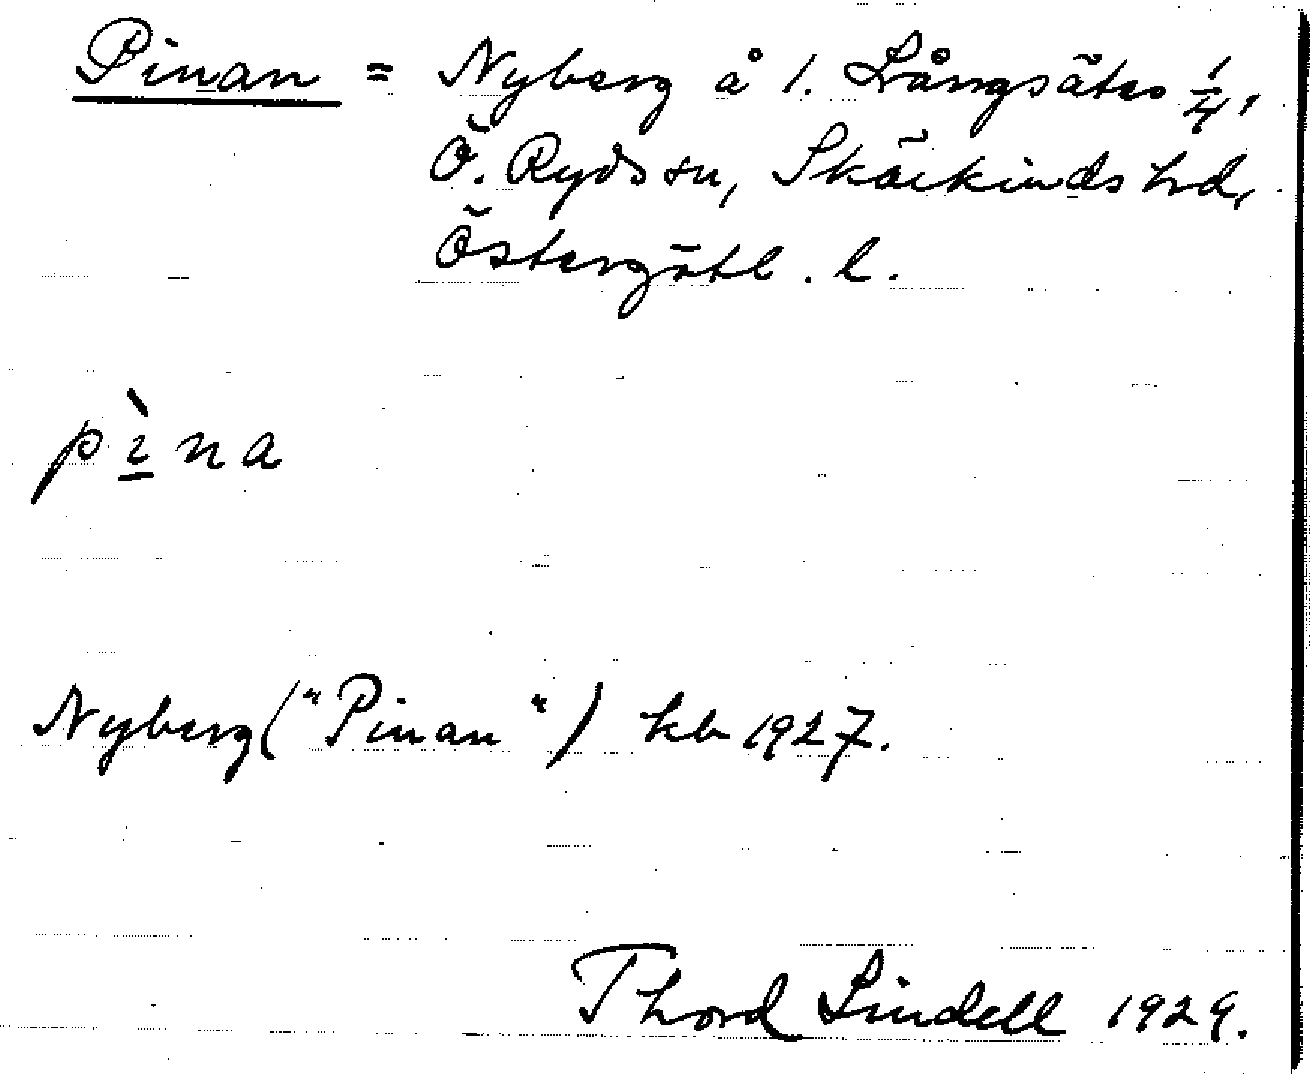 Pinan = Nyberg å 1. Långsäter 1/4,
Ö. Ryds sn, Skärkinds hd,
Östergötl. l.
pìna
Nyberg ("Pinan") kb 1927.
Thord Lindell 1929.